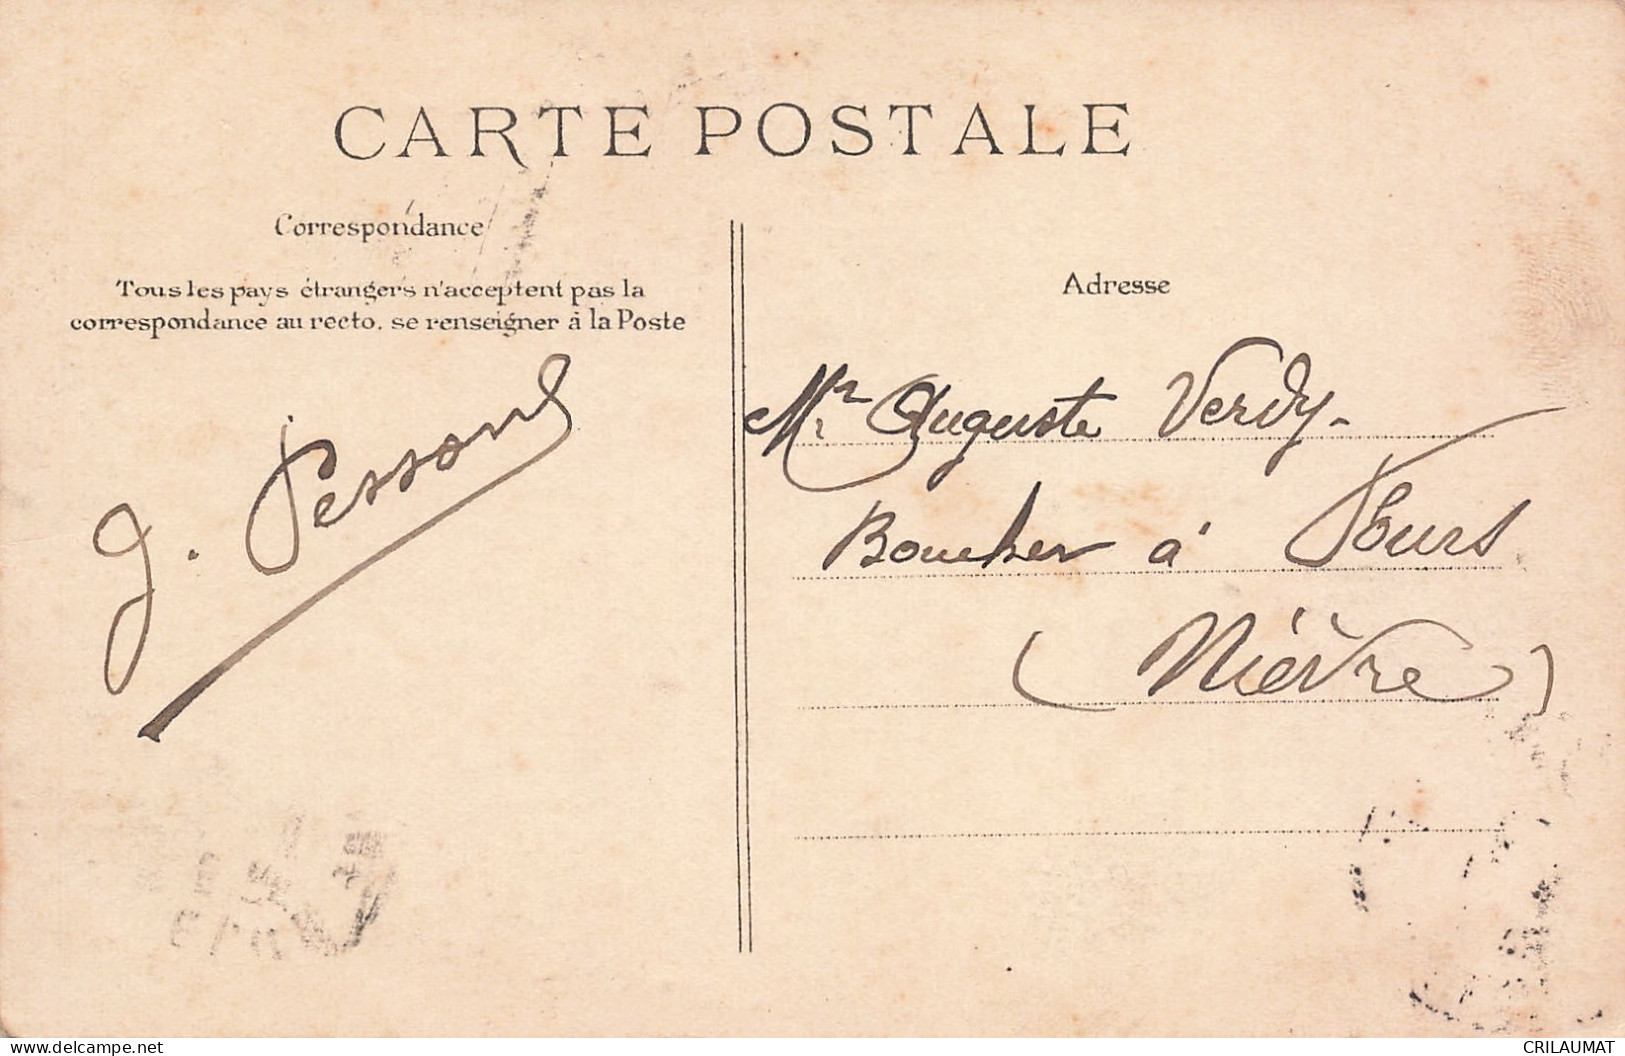 CARTE POSTALE
Correspondance
Tous les pays étrangers n'acceptent pas la
correspondance au recto, se renseigner à la Poste
Adresse
Mr Auguste Verdy-
Boucher à Fours
(Nièvre)
J. Pessons
www.delcampe.net
CRILAUMAT